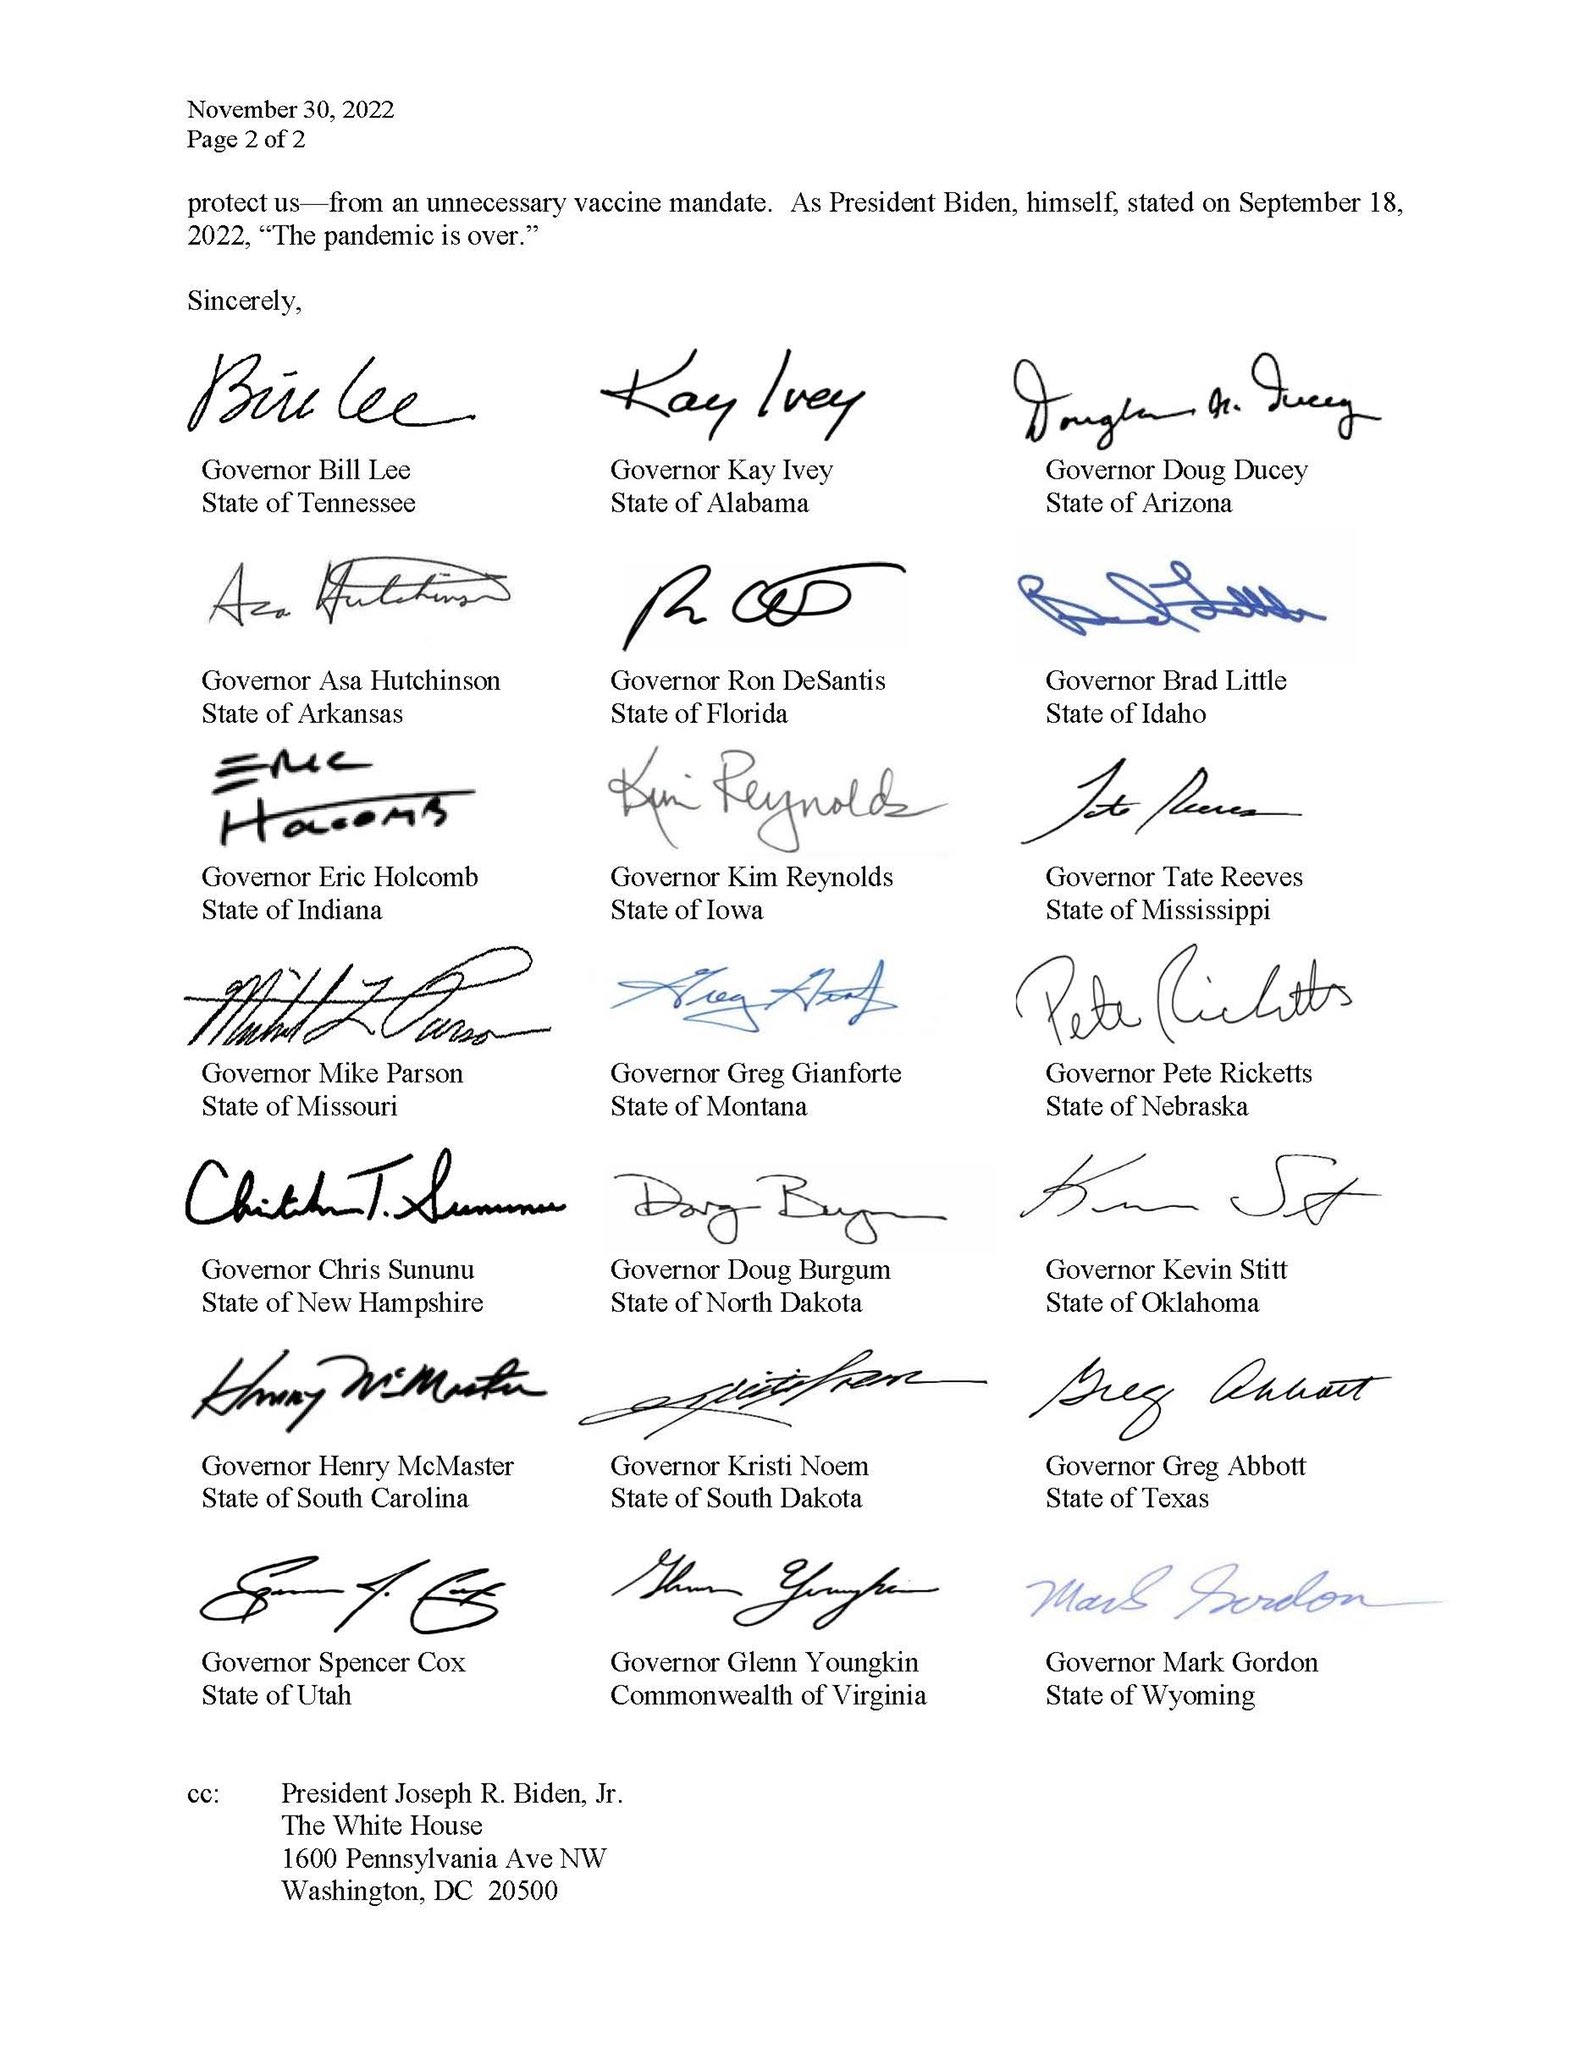 November 30, 2022
Page 2 of 2
protect us—from an unnecessary vaccine mandate.  As President Biden, himself, stated on September 18,
2022, “The pandemic is over.”
Sincerely,
Bill Lee Kay Ivey Douglas A. Ducey
Governor Bill Lee Governor Kay Ivey Governor Doug Ducey
State of Tennessee State of Alabama State of Arizona
Asa Hutchinson
Governor Asa Hutchinson Governor Ron DeSantis Governor Brad Little
State of Arkansas State of Florida State of Idaho
Eric Kim Reynolds Tate Reeves
Holcomb
Governor Eric Holcomb Governor Kim Reynolds Governor Tate Reeves
State of Indiana State of Iowa State of Mississippi
Michael L Parson Greg Pete Ricketts
Governor Mike Parson Governor Greg Gianforte Governor Pete Ricketts
State of Missouri State of Montana State of Nebraska
Christopher T. Sununu Doug Burgum
Governor Chris Sununu Governor Doug Burgum Governor Kevin Stitt
State of New Hampshire State of North Dakota State of Oklahoma
Henry McMaster Kristi Noem Greg Abbott
Governor Henry McMaster Governor Kristi Noem Governor Greg Abbott
State of South Carolina State of South Dakota State of Texas
Spencer J. Cox Glenn Youngkin Mark Gordon
Governor Spencer Cox Governor Glenn Youngkin Governor Mark Gordon
State of Utah Commonwealth of Virginia State of Wyoming
cc: President Joseph R. Biden, Jr.
The White House
1600 Pennsylvania Ave NW
Washington, DC  20500